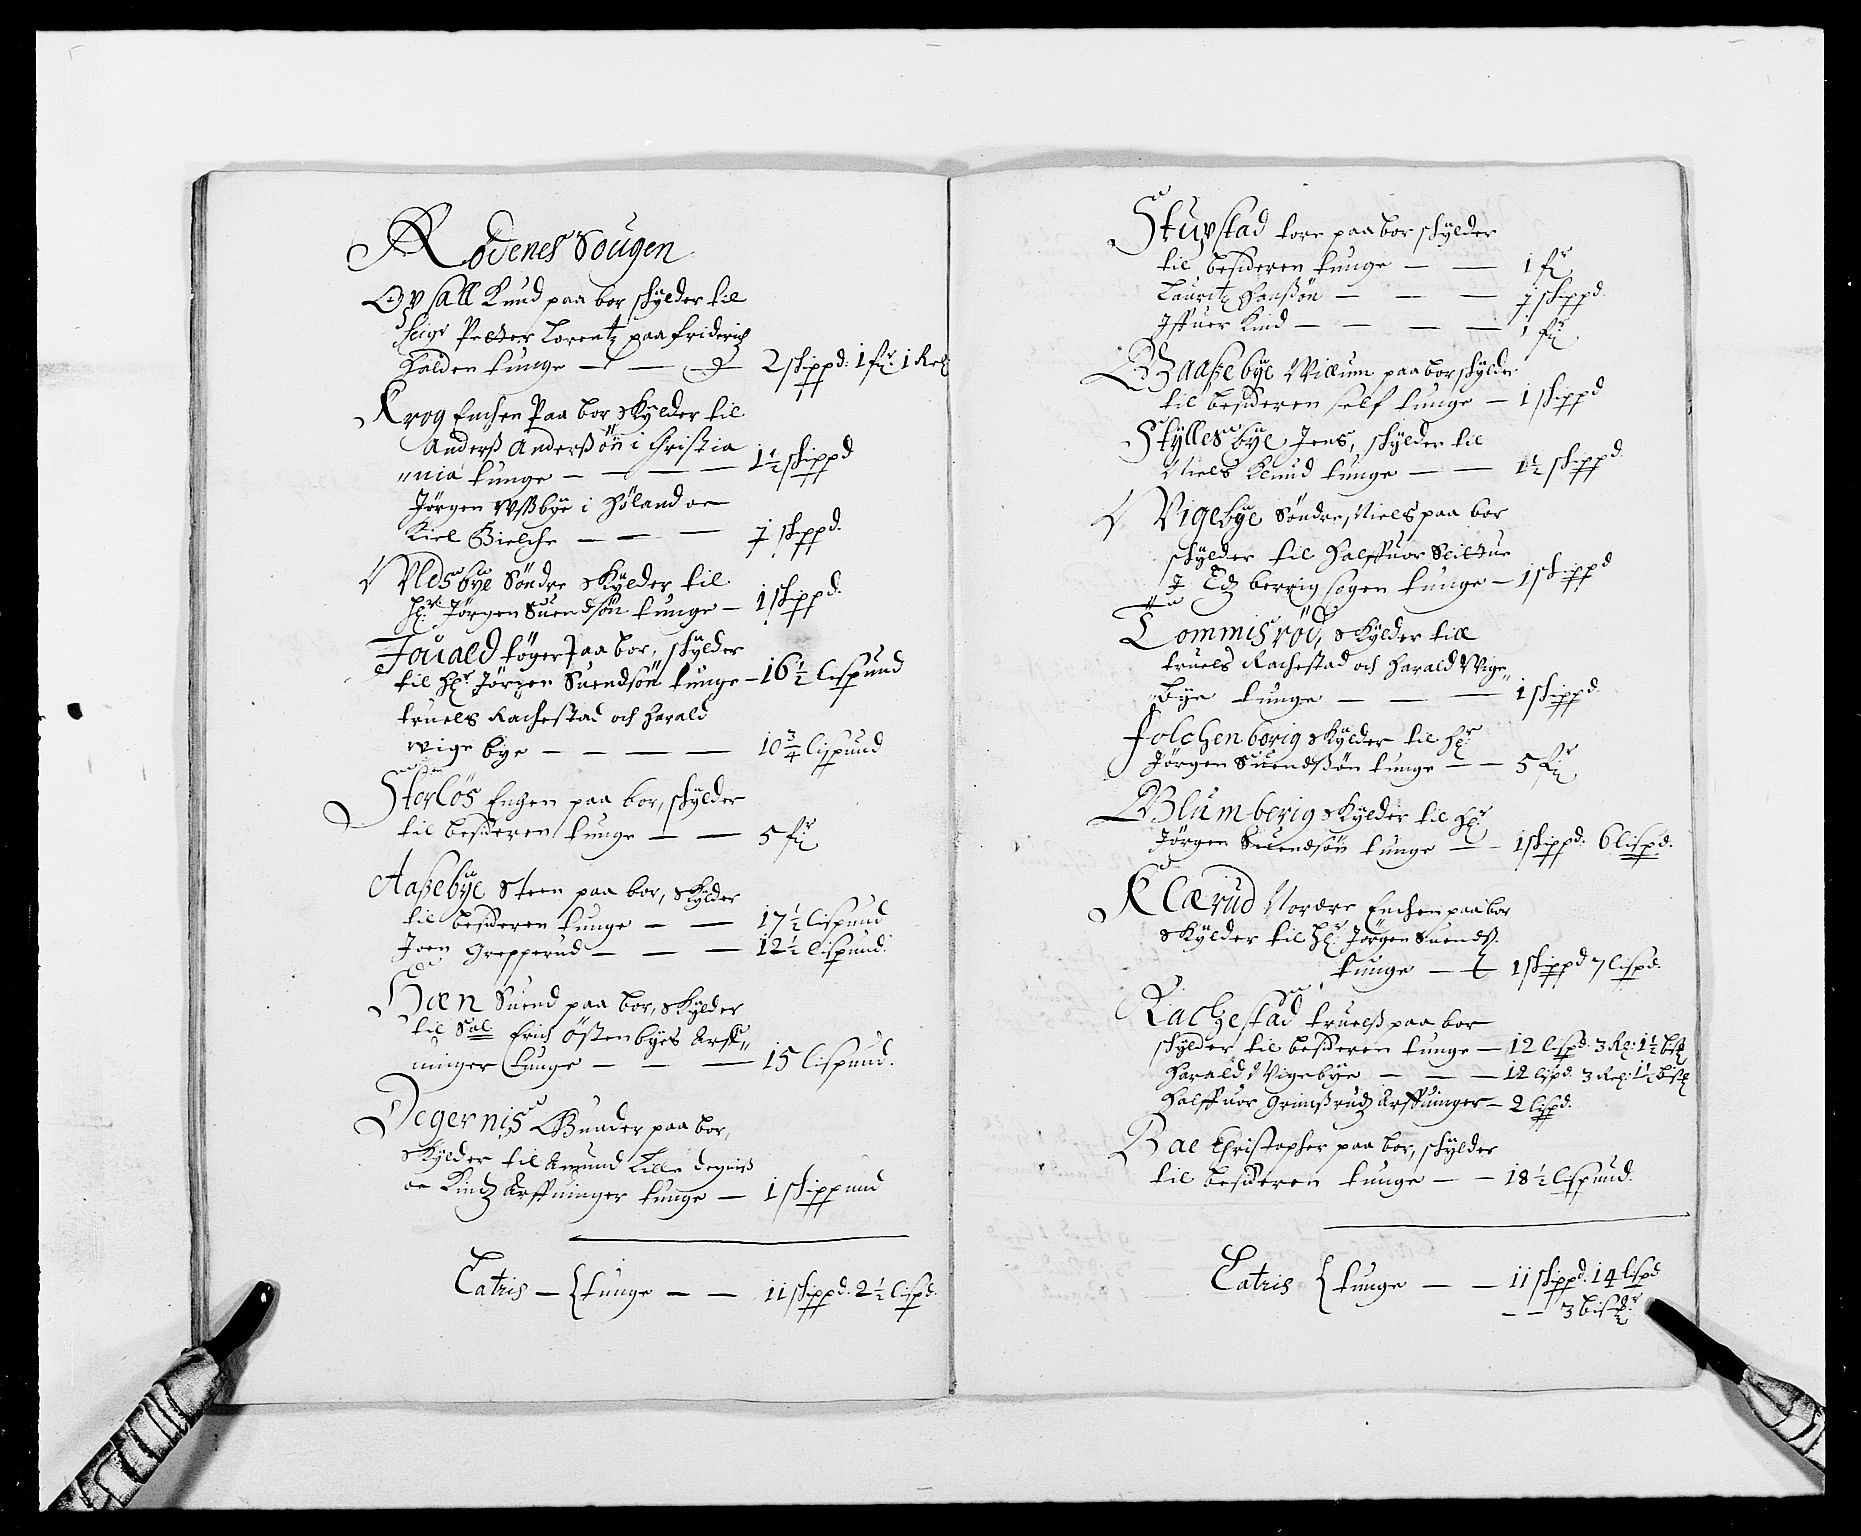 Rødenes Sougen
Opsall Knud paa bor skÿlder til
Seigr Petter Lorentz paa Friderichs
Halden tunge — — — 2 skippd: 1 fr: 1 Rem
Krog Enchen Paa bor skÿlder til
Anderß Anderßøn i Christia
"nia tunge — — — — 1½ skippd
Jørgen Wßbÿe i Høland oc
Kiel Bielche — — — j skippd.
Vldsbÿe Søndre skÿlder til
Hr: Jørgen Suendsøn tunge — 1 skippd.
Jouald tøger Paa bor, skÿlder
til Hr Jørgen Suendsøn tunge — 16½ lispund
truels Rachestad och Harald
wige bye — — — — 10¾ lispund
Sterløs Enchen paa bor, skÿlder
til besideren tunge — — 5 fr
Aaßebÿe Steen paa bor, skÿlder
til besideren tunge — — 17½ lispund
Joen Grepperud — — — 12½ lispund.
Hæn Suend paa bor, skÿlder
til Sal Erich Østenbÿes Arff"
uinger tunge — — — 15 lispund.
Degernis Gunder paa bor,
skÿlder til Amund Lille degnis
oc Kindz Arffuinger tunge — 1 skippund
Latris — { tunge — — 11 skippd. 2½ lispd.
Stupstad tore paa bor skÿlder
til besideren tunge — — 1 fr
Lauritz Hanßøn — — — j skippd.
Iffuer Kind — — — — 1 fr
Baaßebÿe Willum paa bor skÿlder
til besideren self tunge — 1 skippd
Skÿllesbÿe Jens, skÿlder til
Niels Knud tunge — — 1½ skippd.
Vigebÿe Søndre Niels paa bor
skÿlder til Halffuor
J Edz berrig sogen tunge — 1 skippd
Tommisrød, skÿlder till
truels Rachestad och Harald Wige"
"bÿe tunge — — — 1 skippd.
Folchenborig skÿlder til Hr
Jørgen Suendßøn tunge — — 5 fr
Blumberig skÿlder til Hr
Jørgen Suendsøn tunge — — 1 skippd. 6 lispd.
Klærud Nordre Enchen paa bor
skÿlder til Hr Jørgen Suends.
tunge — — 1 skippd 7 lispd.
Rachestad truelß paa bor
skÿlder til besideren tunge — 12 lispd. 3 Re: 1½ bisr
Harald Vigebÿe — — — 12 lispd. 3 Re: 1½ bisr
Halffuor Grimßrudz Arffuinger — 2 lispd.
Bae Christopher paa bor, skÿlder
til besideren tunge — — 18½ lispund.
Latris { tunge — — 11 skippd. 14 lispd
— — 3 bismr